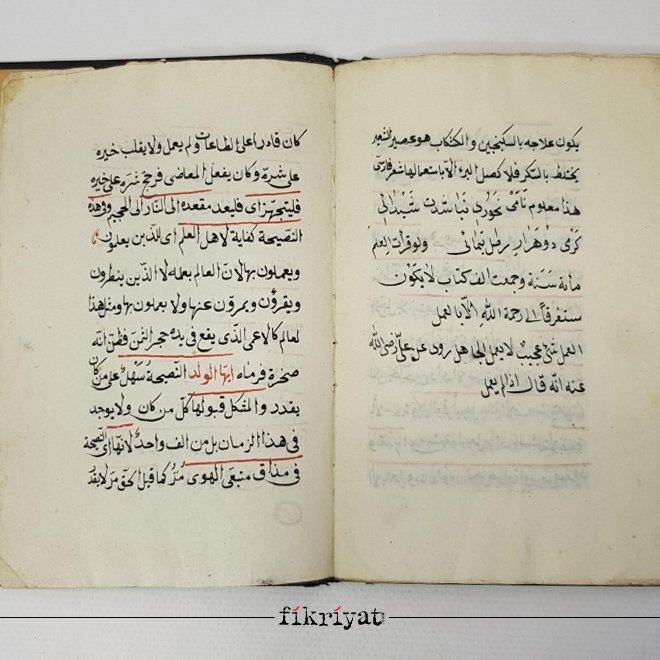 يكون علاجه بالسكنجبين والكشكاب هو عصير الشعير
يختلط بالسكر فلا يحصل البرء الا باستعمالها شعر فارسى
هذا معلوم تامى نخورى نباشدت شيدائى
كرمى دو هزار رطل پيمائى ولو قرأت العلم
مائة سنة وجمعت الف كتاب لا يكون
مستغرقاً الى رحمة الله الا بالعمل
العمل شئ عجيب لا يعمل الجاهل رود عن على رضى الله
عنه انه قال اذا لم يعمل
كان قادرا على الطاعات ولم يعمل ولا يغلب خيره
على شره وكان يفعل المعاضى فرجح شره على خيره
فليتجهزاى فليعد مقعده الى النار الى الجحيم وهذه
النصيحة كفاية لاهل العلم اى للذين يعلمون
ويعملون بها لان العالم بعلمه لا الذين ينظرون
ويقرؤن ويمرون عنها ولا يعملون بها ومثل هذا
العالم كالاعمى الذى يقع فى يده حجر الثمن فظن انه
صخرة فرماه ايها الولد النصيحة سهل على من كان
يقدر والمشكل قبولها كل من كان ولا يوجد
فى هذا الزمان بل من الف واحد لانها اى النصيحة
فى مذاق متبعى الهوى مر كما قيل الحق مر لا يقدر
fikriyat